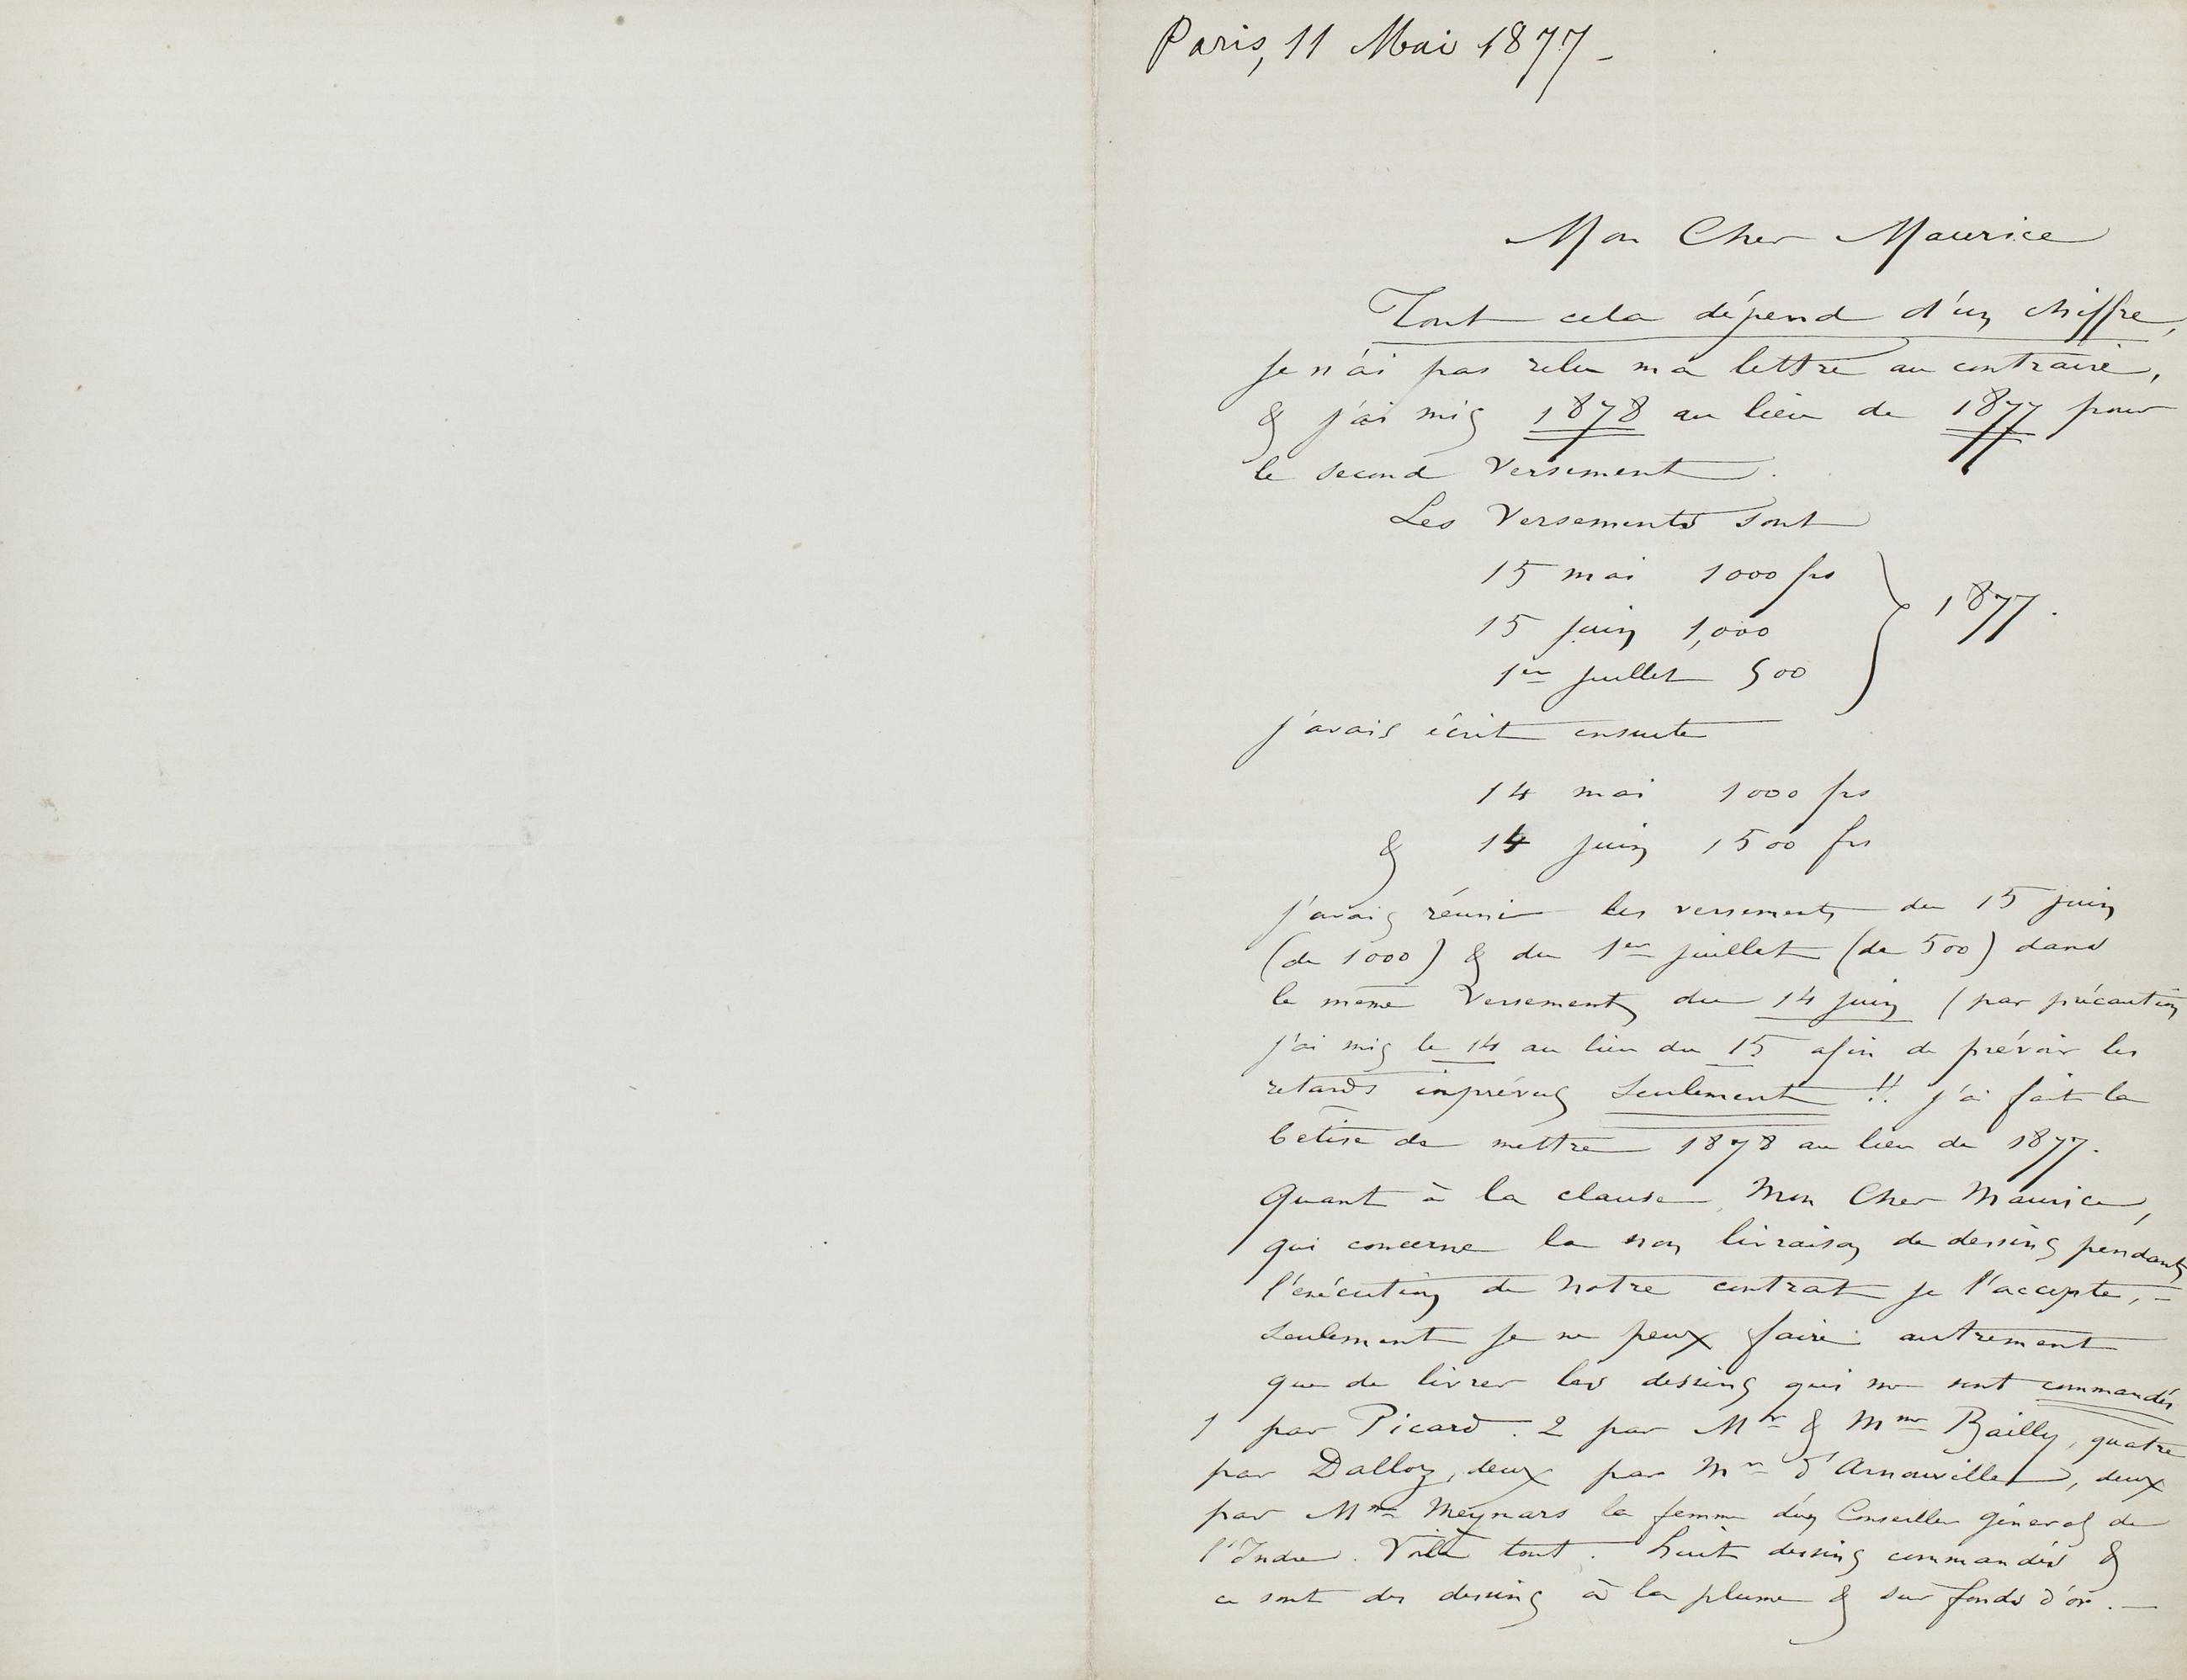 Paris, 11 Mai 1877 -
Mon Cher Maurice
Tout cela dépend d'un chiffre,
Je n'ai pas relu ma lettre au contraire,
& j'ai mis 1878 au lieu de 1877 pour
le second versement.
Les versements sont
15 mai 1000 frs
15 juin 1,000
1er juillet 500
} 1877.
j'avais écrit ensuite
14 mai 1000 frs
& 14 juin 1500 frs
j'avais réuni les versements du 15 juin
(de 1000) & du 1er juillet (de 500) dans
le même versement du 14 juin (par précaution
j'ai mis le 14 au lieu du 15 afin de prévoir les
retards imprévus seulement !! j'ai fait la
bêtise de mettre 1878 au lieu de 1877.
Quant à la clause, Mon Cher Maurice,
qui concerne la non livraison de dessins pendant
l'exécution de notre contrat je l'accepte, -
seulement je ne peux faire autrement
que de livrer les dessins qui me sont commandés
1 par Picard. 2 par Mr & Mme Bailly, quatre
par Dalloz, deux par Mr d'Arnouville, deux
par Mme Meynars la femme d'un Conseiller général de
l'Indre. Voilà tout. huit dessins commandés &
ce sont des dessins à la plume & sur fonds d'or. —